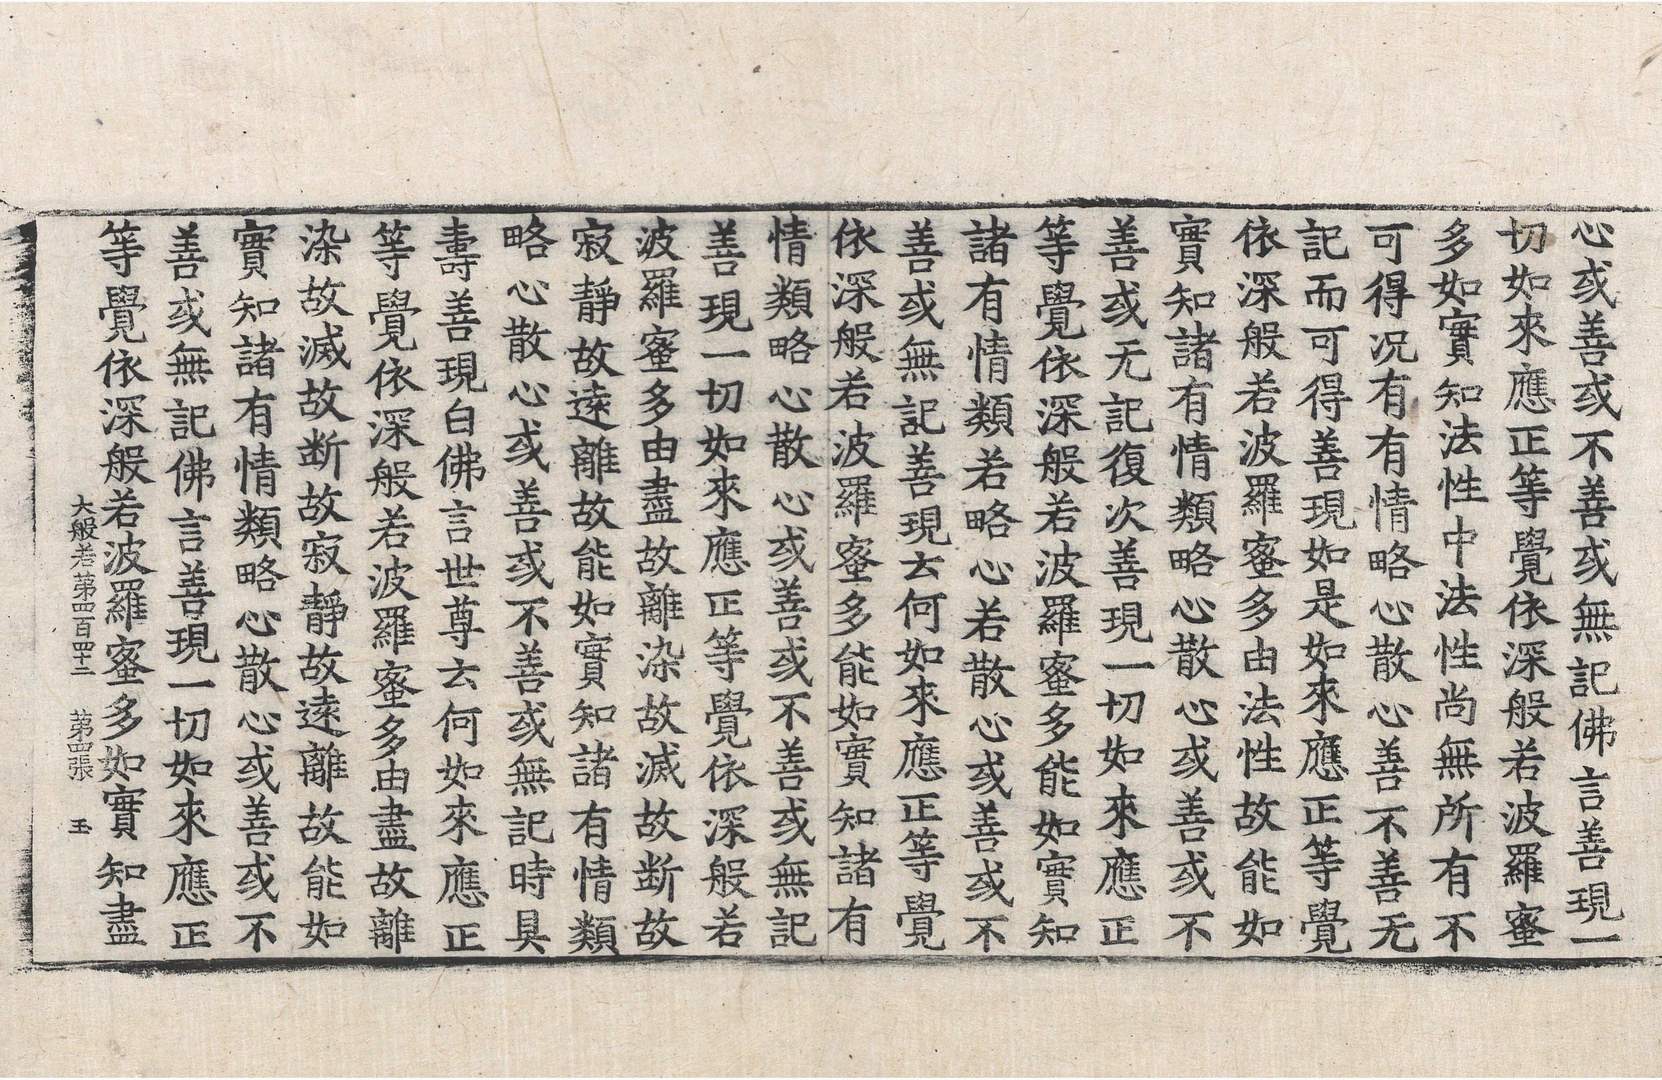 心或善或不善或無記佛言善現一
切如來應正等覺依深般若波羅蜜
多如實知法性中法性尚無所有不
可得況有有情略心散心善不善无
記而可得善現如是如來應正等覺
依深般若波羅蜜多由法性故能如
實知諸有情類略心散心或善或不
善或无記復次善現一切如來應正
等覺依深般若波羅蜜多能如實知
諸有情類若略心若散心或善或不
善或無記善現云何如來應正等覺
依深般若波羅蜜多能如實知諸有
情類略心散心或善或不善或無記
善現一切如來應正等覺依深般若
波羅蜜多由盡故離染故滅故断故
寂靜故遠離故能如實知諸有情類
略心散心或善或不善或無記時具
壽善現白佛言世尊云何如來應正
等覺依深般若波羅蜜多由盡故離
染故滅故断故寂靜故遠離故能如
實知諸有情類略心散心或善或不
善或無記佛言善現一切如來應正
等覺依深般若波羅蜜多如實知盡
大般若第四百四十二 第四張 玉